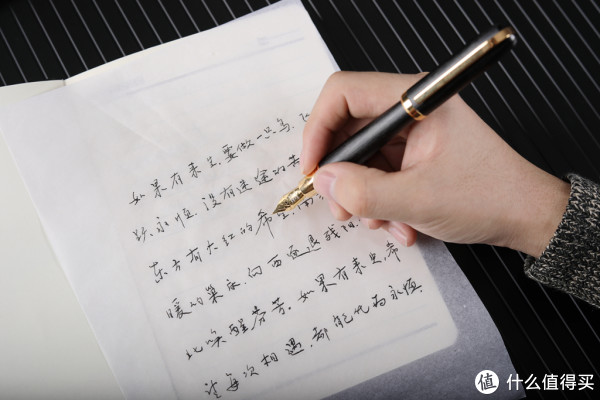 如果有来生,要做一只鸟,飞
跃永恒,没有迷途的苦
东方有火红的希
暖的巢床,向西逐退残阳
比唤醒芬芳。如果有来生,希
望每次相遇,都能化为永恒
值 什么值得买